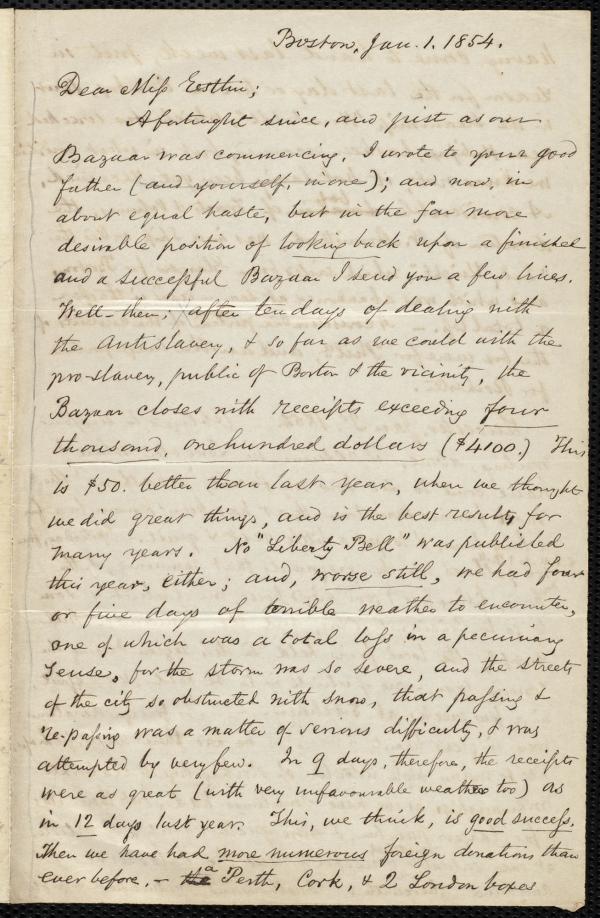 Boston, Jan. 1. 1854.
Dear Miss Estlin;
A fortnight since, and just as our
Bazaar was commencing, I wrote to your good
father (and yourself, in one); and now, in
about equal haste, but in the far more
desirable position of looking back upon a finished
and a successful Bazaar I send you a few lines.
Well-then; after ten days of dealing with
the Antislavery, & so far as we could with the
pro-slavery, public of Boston & the vicinity, the
Bazaar closes with receipts exceeding four
thousand, one hundred dollars ($4100.) This
is $50. better than last year, when we thought
we did great things, and is the best result, for
many years. No "Liberty Bell" was published
this year, either; and, worse still, we had four
or five days of terrible weather to encounter,
one of which was a total loss in a pecuniary
sense, for the storm was so severe, and the streets
of the city so obstructed with snow, that passing &
re-passing was a matter of serious difficulty, & was
attempted by very few. In 9 days, therefore, the receipts
were as great (with very unfavourable weather too) as
in 12 days last year. This, we think, is good success.
Then we have had more numerous foreign donations than
ever before, - the a Perth, Cork, & 2 London boxes